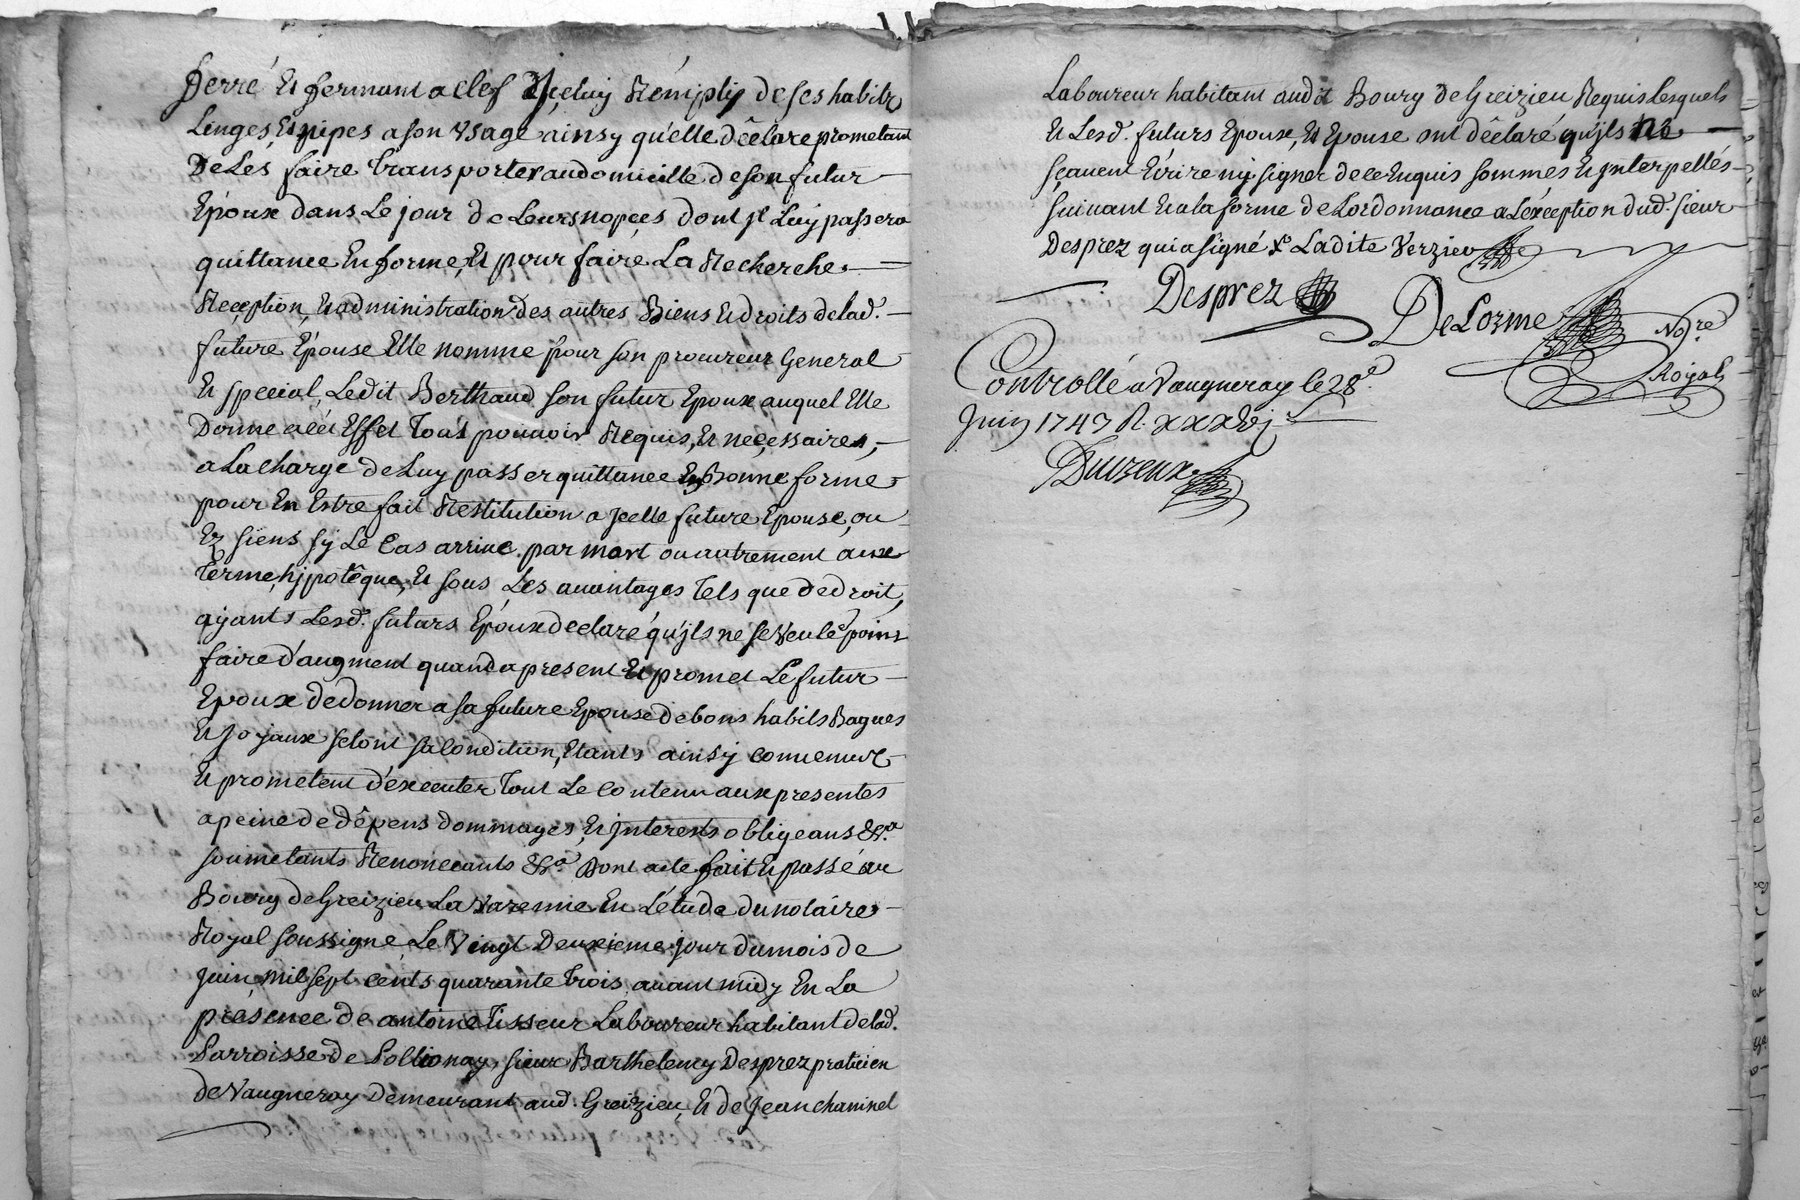 ferré Et fermant a clef Jceluy Rémply de ses habits
Linges, Et nipes a son Usage ainsy qu'elle déclare prometant
De Les faire transporter au domicille de son futur
Epoux dans Le jour de Leurs nopçes dont jl Luy passera
quittance En forme, Et pour faire La Recherche
Reception, Et administration des autres Biens Et droits de lad.
future Épouse Elle nomme pour son procureur General
Et special, Ledit Berthaud son futur Epoux auquel Elle
Donne a cét Effet Tous pouvoir Requis, Et neçessaires,
a La charge de Luy passer quittance En Bonne forme
pour En Estre fait Restitution a jcelle future Epouse, ou
Ez siens sy Le Cas arrive par mort ou autrement aux
Terme, hypotêque, Et sous Les avantages Tels que de droit,
ayants Lesd. futurs Epoux declaré qu'jls né se veule point
faire d'augment quand a present Et promet Le futur
Epoux de donner a sa future Epouse de bons habits Bagues
Et Joyaux selont sa Condition, Etants ainsy convenus
Et prometent d'éxecuter Tout Le contenu aux presentes
a peine de dépens dommages, Et jnterests obligeans &c.a
soumetants Renoncants &c.a Dont acte fait Et passé au
Bourg de Greizieu La Varenne En L'étude du notaire
Royal soussigne Le Vingt Deuxieme jour du mois de
Juin, mil sept cents quarante Trois avant midy En La
presence de antoine Tisseur Laboureur habitant de lad.
Parroisse de Pollionay, sieur Barthelemy Desprez praticien
de Vaugneray Demeurant aud. Greizieu, Et de Jean chaninel
Laboureur habitant audit Bourg de Greizieu Requis Lesquels
Et Lesd. futurs Epoux, Et Epouse ont déclaré qu'jls ne
sçavent Ecrire ny signer de ce Enquis sommés Et jnterpellés
suivant Et a la forme de L'ordonnance a L'éxception dud. sieur
Desprez qui a signé Ladite Verzieu
Desprez
DeLorme No.re
Royal
Controllé a Vaugneray le 28.e
Juin 1743 R. xxxvj s